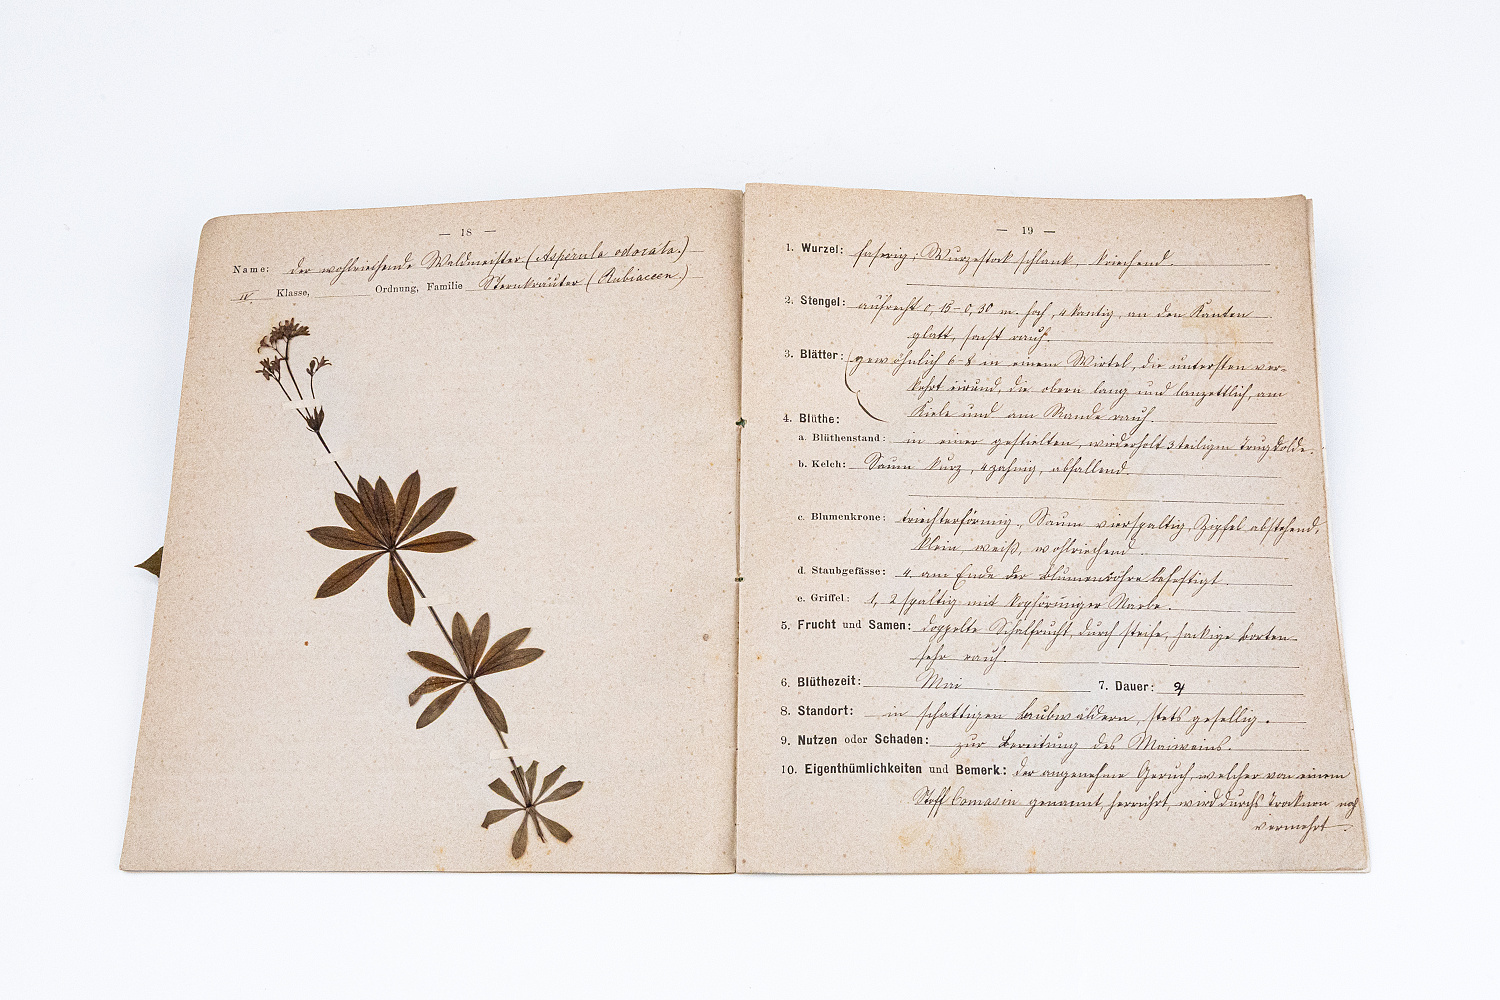 — 18 —
Name: Der wohlriechende Waldmeister (Aspérula odoráta.)
IV. Klasse, Ordnung, Familie Sternkräuter (Rubiaceen.)
— 19 —
1. Wurzel: faserig, Wurzelstock schlank, kriechend.
2. Stengel: aufrecht 0,15–0,30 m. hoch, 4 kantig, an den Kanten
glatt, sonst rauh.
3. Blätter: gewöhnlich 6–8 in einem Wirtel, die untersten ver-
kehrt eirund, die obern lang und lanzettlich, am
Kiele und am Rande rauh.
4. Blüthe:
a. Blüthenstand: in einer gestielten, wiederholt 3 teiligen Trugdolde.
b. Kelch: Saum kurz, 4 zähnig, abfallend.
c. Blumenkrone: trichterförmig, Saum vierspaltig, Zipfel abstehend,
klein, weiß, wohlriechend.
d. Staubgefässe: 4 am Ende der Blumenröhre befestigt.
e. Griffel: 1, 2 spaltig mit kopförmiger Narbe.
5. Frucht und Samen: doppelte Schalfrucht, durch steife, hackige Borsten
sehr rauh.
6. Blüthezeit: Mai 7. Dauer: ♃
8. Standort: in schattigen Laubwäldern, stets gesellig.
9. Nutzen oder Schaden: zur Bereitung des Maiweins.
10. Eigenthümlichkeiten und Bemerk.: Der angenehme Geruch, welcher von einem
Stoff Comarin genannt, herrührt, wird durchs Trocknen noch
vermehrt.